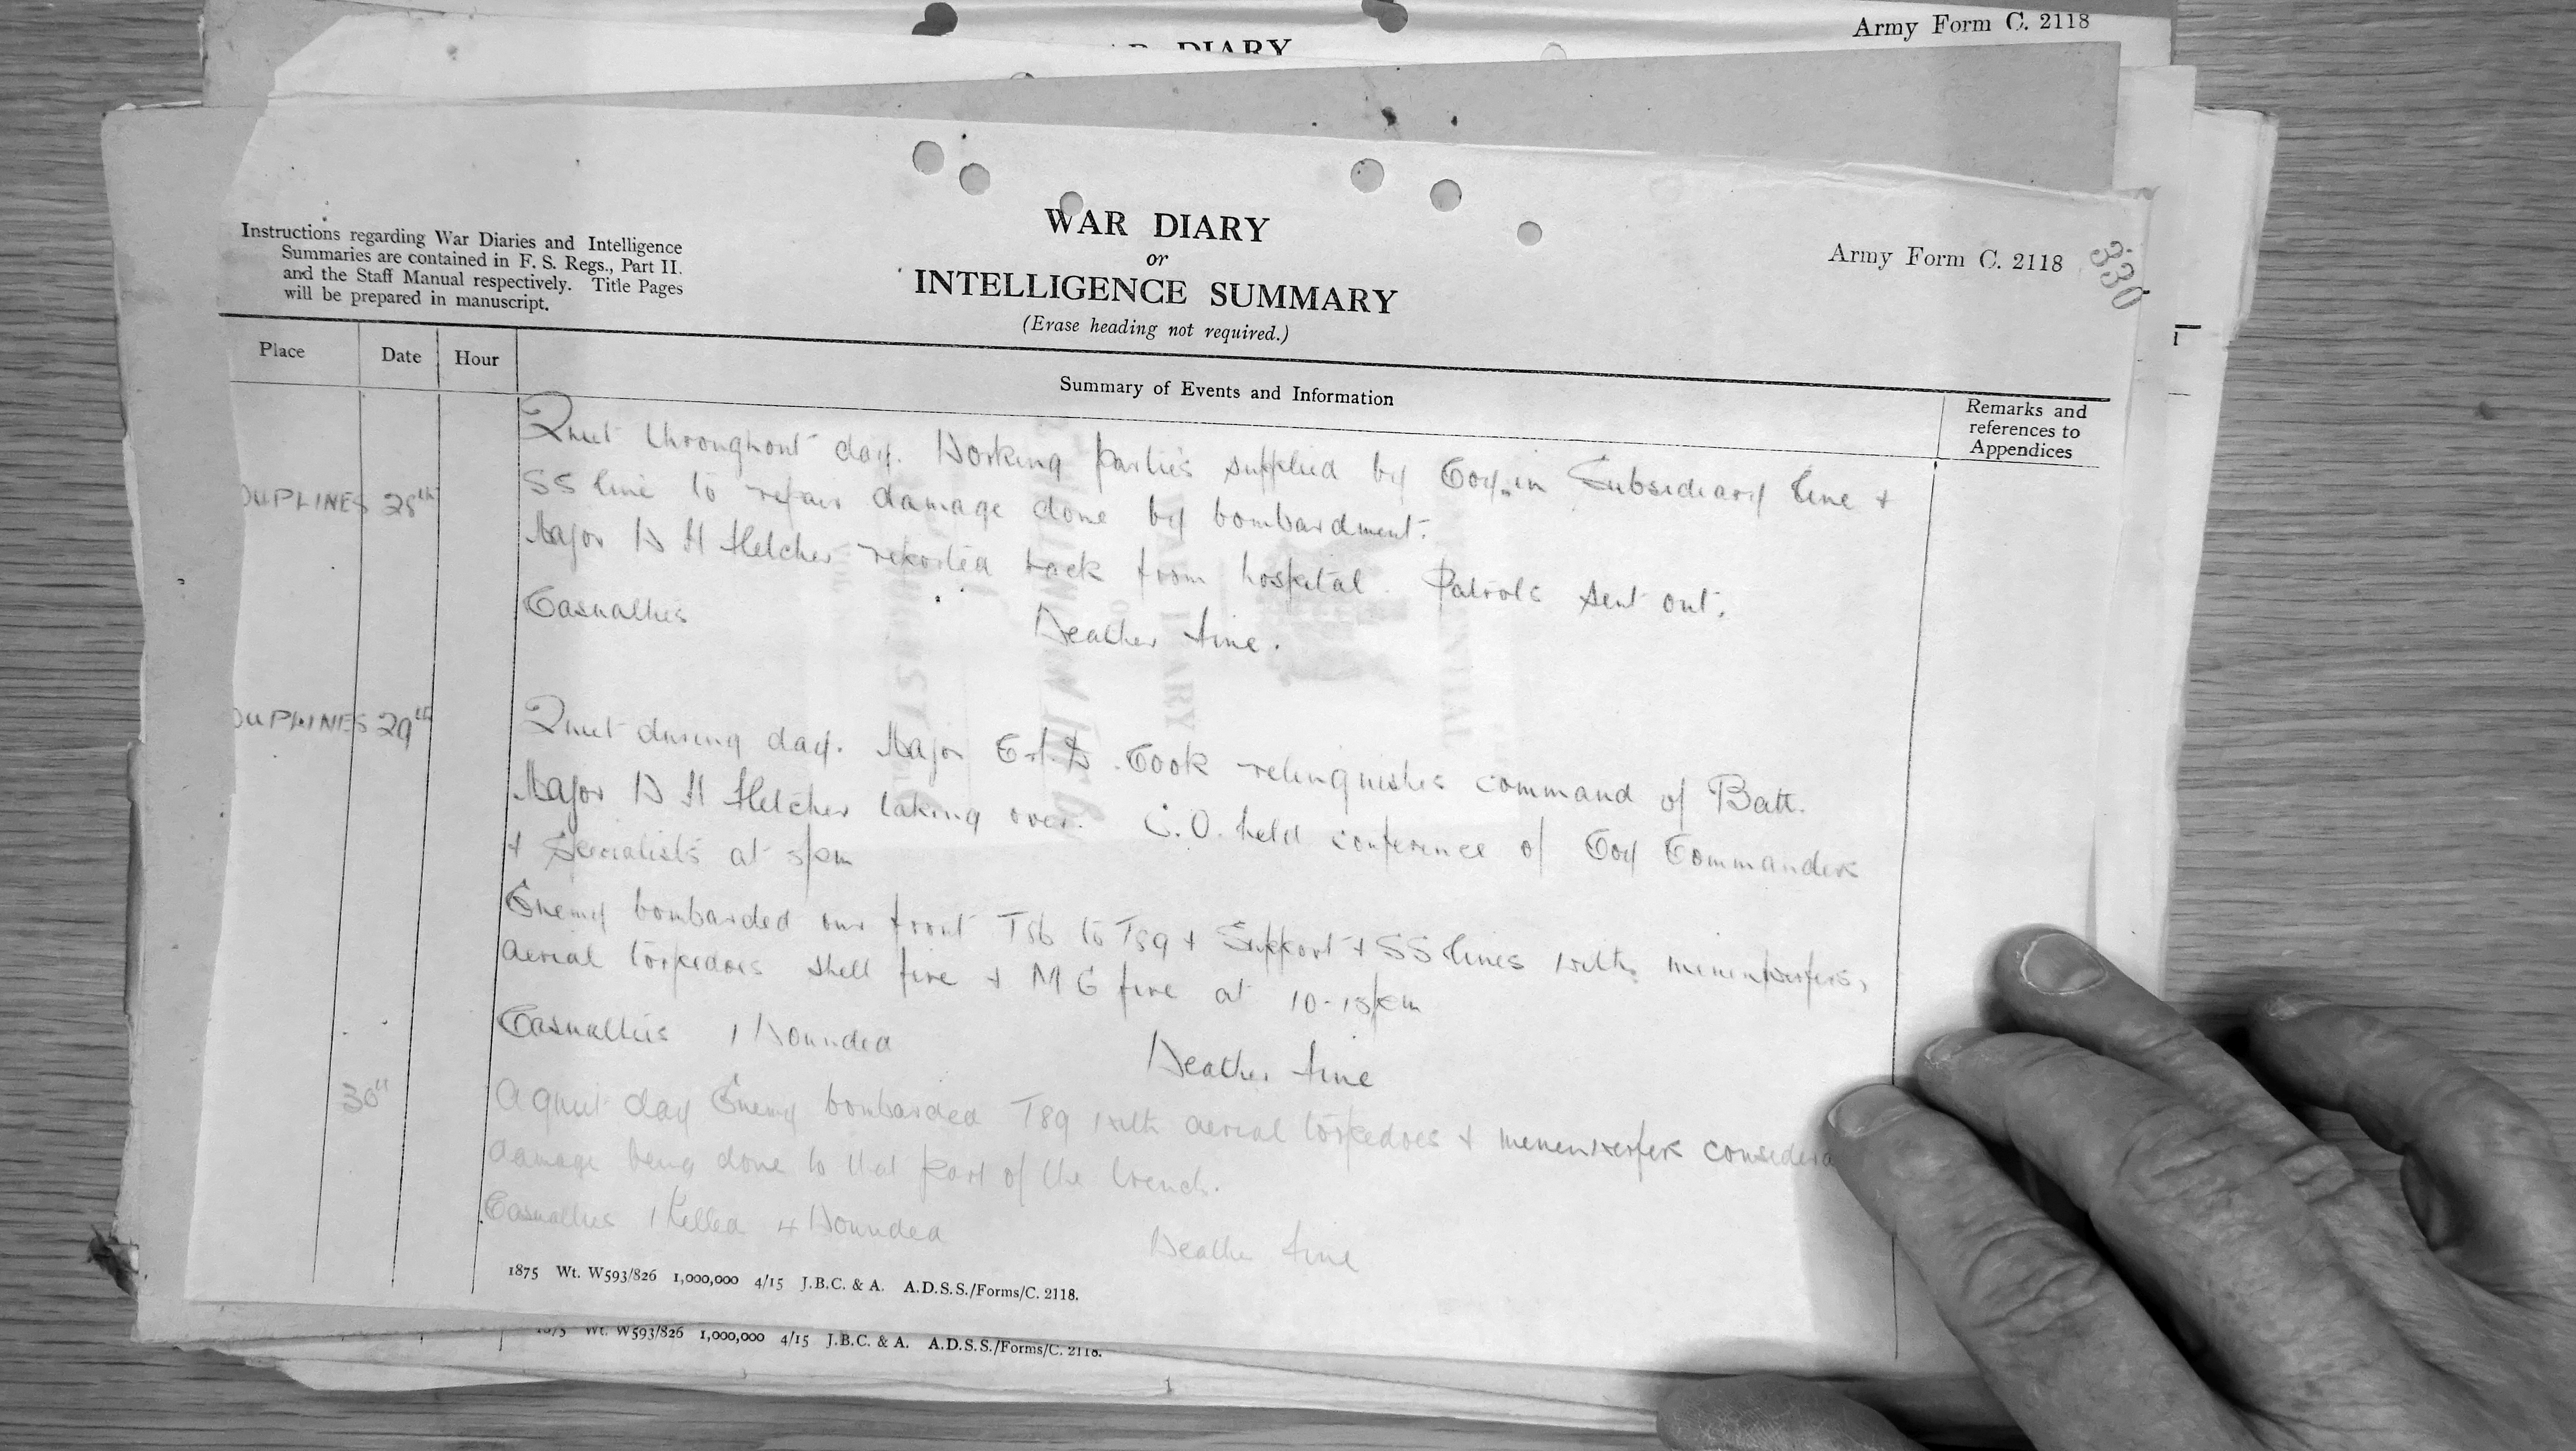 Army Form C. 2118
WAR DIARY
330
Instructions regarding War Diaries and Intelligence
Summaries are contained in F. S. Regs., Part II.
and the Staff Manual respectively. Title Pages
will be prepared in manuscript.
WAR DIARY
or
INTELLIGENCE SUMMARY
(Erase heading not required.)
Army Form C. 2118
Place Date Hour
Summary of Events and Information
Remarks and
references to
Appendices
OUPLINES 28th
Quiet throughout day. Working parties supplied by Coy. in Subsidiary line +
SS line to repair damage done by bombardment.
Major W H Fletcher reported back from hospital. Patrols sent out.
Casualties Weather fine.
OUPLINES 29th
Quiet during day. Major Cook relinquishes command of Batt.
Major W H Fletcher taking over. C.O. held conference of Coy Commanders
+ Specialists at 5pm
Enemy bombarded our front to T89 + Support + SS lines with minenwerfers,
aerial torpedoes shell fire + M G fire at 10-15pm
Casualties 1 Wounded Weather fine
30th
A quiet day Enemy bombarded T89 with aerial torpedoes + minenwerfers considera
damage being done to that part of the trench.
Casualties 1 Killed 4 Wounded Weather fine
1875 Wt. W593/826 1,000,000 4/15 J.B.C. & A. A.D.S.S./Forms/C. 2118.
1875 Wt. W593/826 1,000,000 4/15 J.B.C. & A. A.D.S.S./Forms/C. 2118.